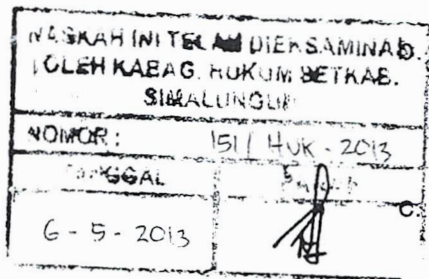 NASKAH INI TELAH DIEKSAMINA D.
OLEH KABAG. HUKUM SETKAB.
SIMALUNGUN
NOMOR : 151 / HUK - 2013
TANGGAL
C.
6 - 5 - 2013